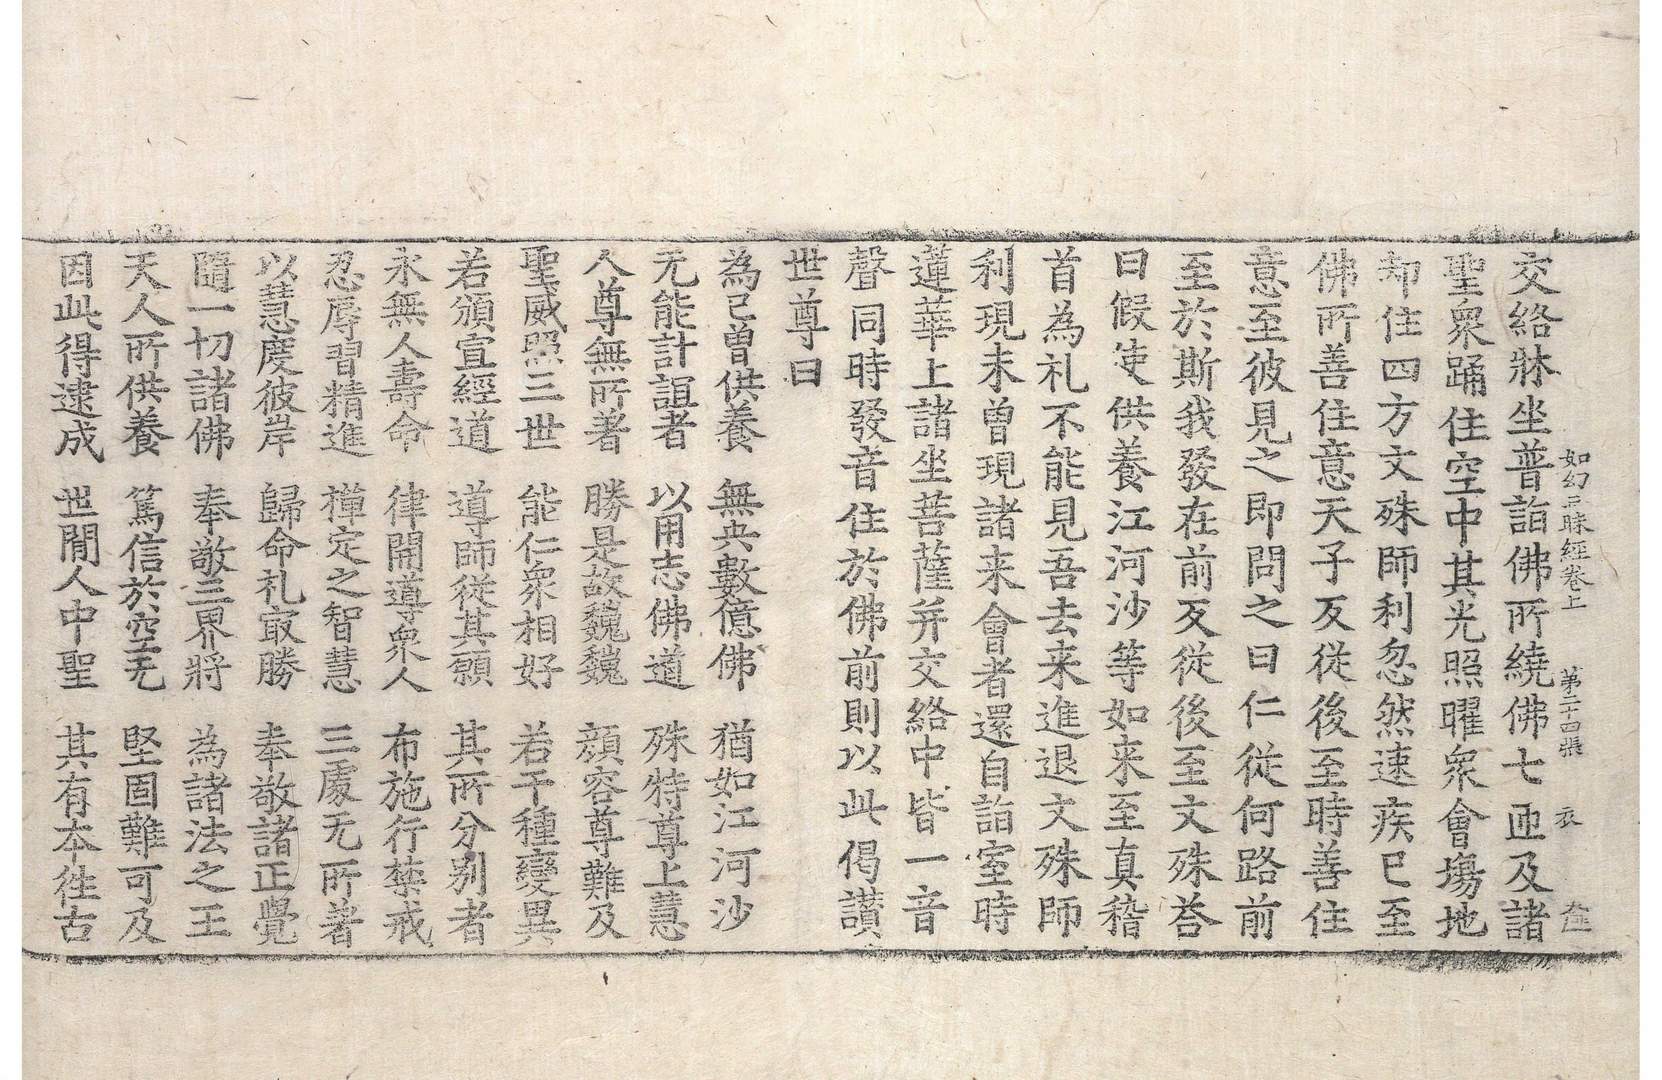 如幻三昧經卷上 第二十四張 衣
交絡牀坐普詣佛所繞佛七迊及諸
聖衆踊住空中其光照曜衆會塲地
却住四方文殊師利忽然速疾已至
佛所善住意天子攴從後至時善住
意至彼見之即問之曰仁從何路前
至於斯我發在前攴從後至文殊荅
曰假使供養江河沙等如来至真稽
首為礼不能見吾去来進退文殊師
利現未曽現諸来會者還自詣室時
蓮華上諸坐菩薩并交絡中皆一音
聲同時發音住於佛前則以此偈讃
世尊曰
為已曽供養 無央數億佛 猶如江河沙
无能計誼者 以用志佛道 殊特尊上慧
人尊無所著 勝是故巍巍 顔容尊難及
聖威照三世 能仁衆相好 若干種變異
若頒宣經道 導師從其願 其所分别者
永無人壽命 律開導衆人 布施行禁戒
忍辱習精進 禪定之智慧 三處无所著
以慧度彼岸 歸命礼㝡勝 奉敬諸正覺
隨一切諸佛 奉敬三界將 為諸法之王
天人所供養 篤信於空无 堅固難可及
因此得逮成 世閒人中聖 其有本徃古